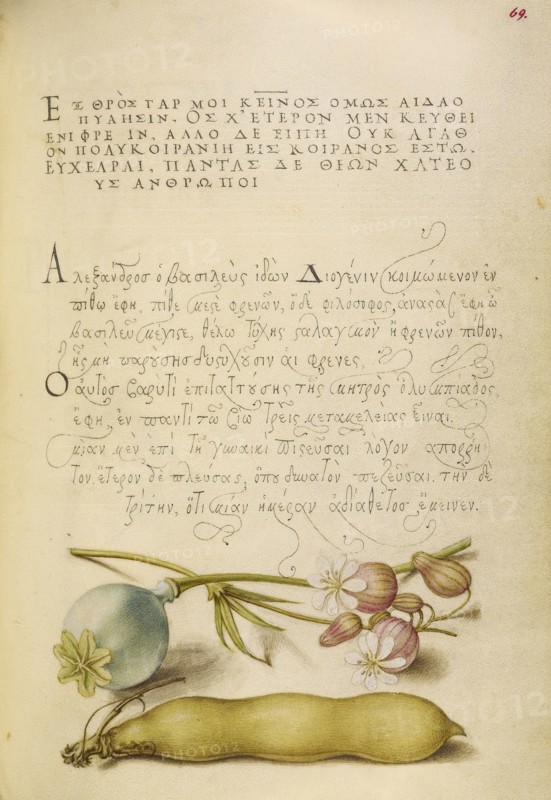 69.
ΕΧΘΡῸΣ ΓΑΡ ΜΟΙ ΚΕΙΝΟΣ ΟΜΩΣ ΑΙΔΑΟ
ΠΥΛΗΣΙΝ. ΟΣ Χ' ΕΤΕΡΟΝ ΜΕΝ ΚΕΥΘΕΙ
ΕΝΙ ΦΡΕ ΙΝ, ΑΛΛΟ ΔΕ ΕΙΠΗ ΟΥΚ ΑΓΑΘ
ΟΝ ΠΟΛΥΚΟΙΡΑΝΙΗ ΕΙΣ ΚΟΙΡΑΝΟΣ ΕΣΤΩ.
ΠΑΝΤΑΣ ΔΕ ΘΕΩΝ ΧΑΤΕΟ
ΥΣ ΑΝΘΡΩΠΟΙ
Αλεξάνδροσ ὁ βασιλεὺς ἰδὼν Διογένιν κοιμώμενον ἐν
πίθω ἔφη, πίθε μεσὲ φρενῶν, ὁ δὲ φιλόσοφος, ἀναςὰς ἔφη ὦ
βασιλεῦ μέγιςε, θέλω τύχης ςαλαγμὸν ἢ φρενῶν πίθον,
ἧς μὴ αἱ φρενες.
Ο ἀυτὸσ ἐπιταττύσης τῆς μητρὸς ὀλυμπιάδος,
ἔφη, ἐν παντὶ τῷ βίῳ τρεῖς μεταμελείας εἶναι.
μίαν μὲν ἐπὶ τῇ γυναικὶ πιςεῦσαι λόγον απορρη
τον. ἕτερον δὲ πλεύσας, ὅπου δυνατὸν πεζεῦσαι. την δὲ
τρίτην, ὅτι μίαν ἡμέραν ἀδιάθετοσ ἔμεινεν.
PHOTO12